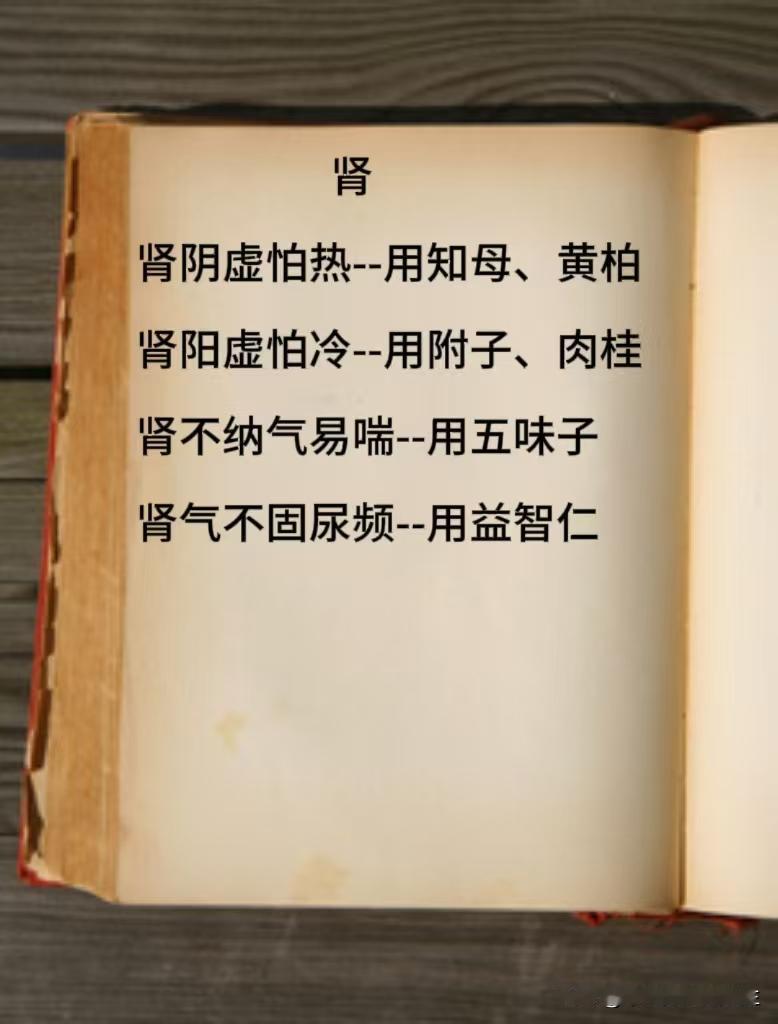 肾
肾阴虚怕热--用知母、黄柏
肾阳虚怕冷--用附子、肉桂
肾不纳气易喘--用五味子
肾气不固尿频--用益智仁